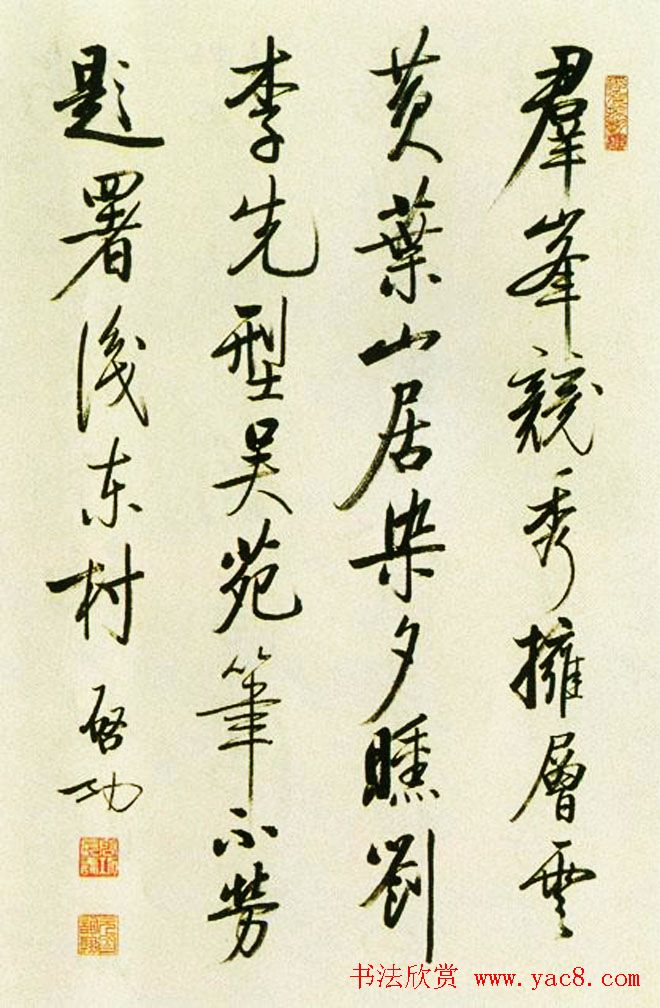 羣峯競秀擁層雲
黄葉山居染夕曛劉
李先型吴苑筆不勞
題署後东村 啓功
书法欣赏 www.yac8.com